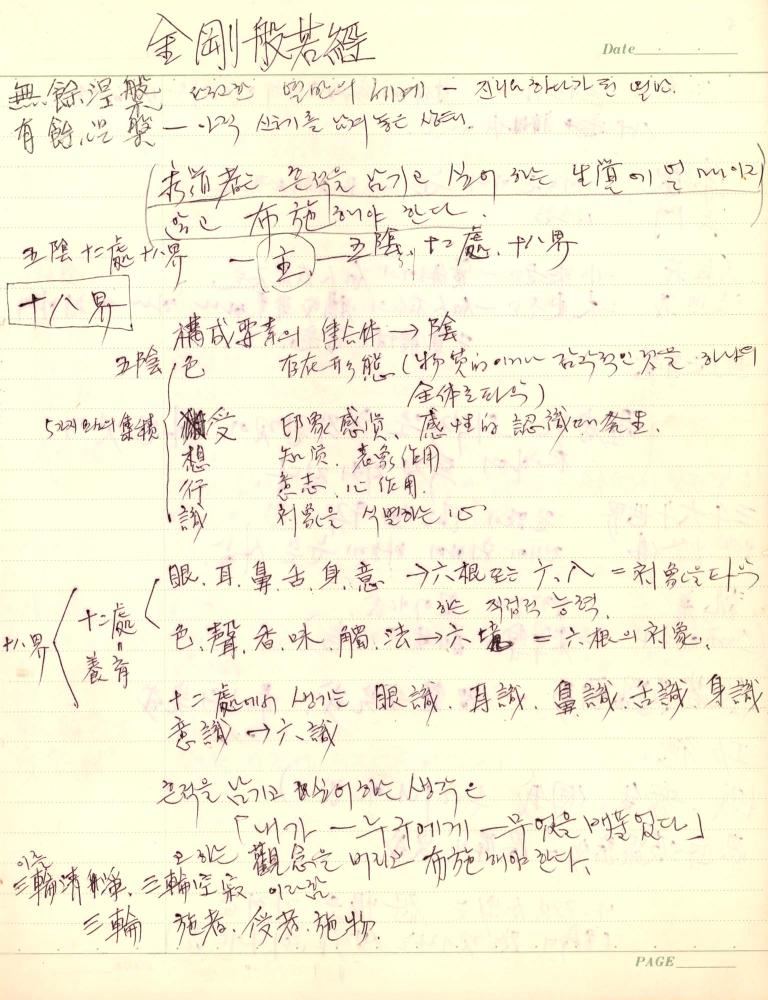 金剛般若經
Date
無餘涅槃 완전한 열반의 세계 -
有餘涅槃 - 아직 신체를 남겨 놓은 상태.
(求道者는 흔적을 남기고 싶어 하는 生覺에 얽매이지
않고 布施해야 한다.)
五陰 十二處 十八界 - 主 - 五陰, 十二處, 十八界
十八界
構成要素의 集合体 → 陰
五陰 色 存在形態 (物質的이거나 감각적인 것을 하나의
全体로 파악)
5가지 의 集積 受 印象感覺, 感性的 認識 發生.
想 知覺, 表象作用
行 意志, 心作用.
識 対象을 식별하는 心
眼. 耳. 鼻. 舌. 身. 意 → 六根 또는 六入 = 対象을 파악
하는 직접적 능력.
十八界 十二處 = 養育
色. 聲. 香. 味. 觸. 法 → 六境 = 六根의 対象.
十二處에서 생기는 眼識. 耳識. 鼻識. 舌識. 身識
意識 → 六識
흔적을 남기고 싶어하는 생각은
「내가 - 누구에게 - 무엇을 베풀었다」
고 하는 觀念을 버리고 布施해야 한다.
이를
三輪清淨. 三輪空寂 이라함
三輪 施者. 受者. 施物.
PAGE